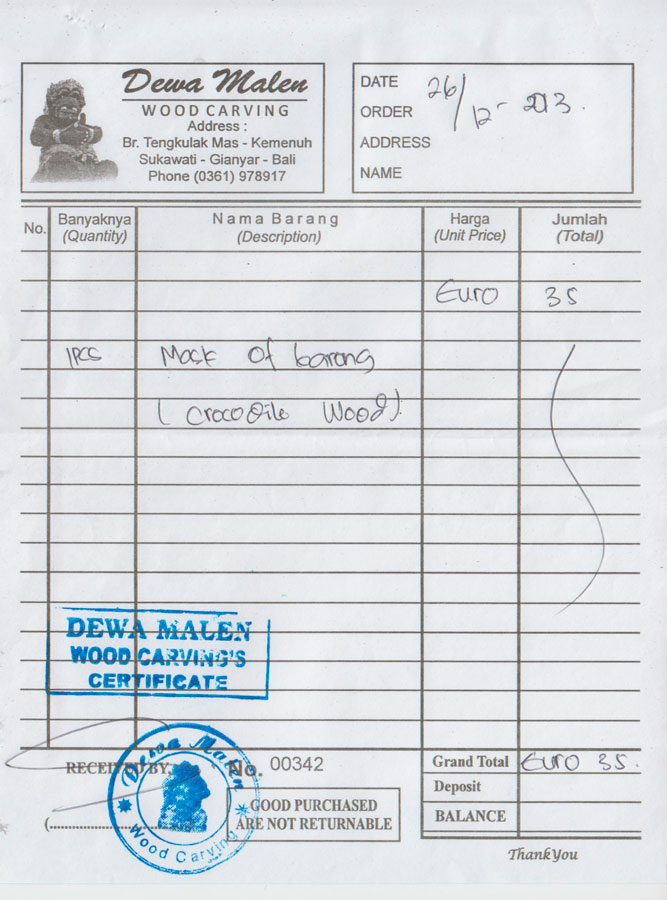 Dewa Malen
WOOD CARVING
Address :
Br. Tengkulak Mas - Kemenuh
Sukawati - Gianyar - Bali
Phone (0361) 978917
DATE 26/12-2013.
ORDER
ADDRESS
NAME
No. Banyaknya Nama Barang Harga Jumlah
(Quantity) (Description) (Unit Price) (Total)
Euro 35
1PCS Mask Of barong
(Crocodile Wood).
DEWA MALEN
WOOD CARVING'S
CERTIFICATE
RECEIVED BY, No. 00342
(....................)
Dewa Malen
Wood Carving
GOOD PURCHASED
ARE NOT RETURNABLE
Grand Total Euro 35.
Deposit
BALANCE
Thank You